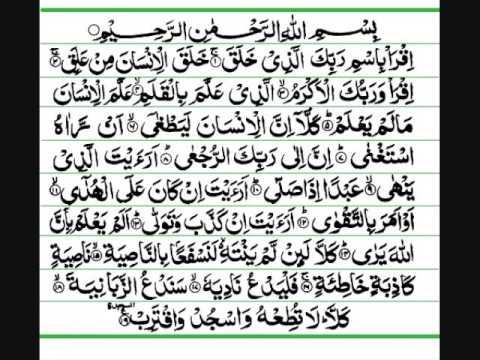 بِسْمِ اللهِ الرَّحْمٰنِ الرَّحِيْمِ
اِقْرَاْ بِاسْمِ رَبِّكَ الَّذِيْ خَلَقَ ۚ۱ خَلَقَ الْاِنْسَانَ مِنْ عَلَقٍ ۚ۲
اِقْرَاْ وَرَبُّكَ الْاَكْرَمُ ۙ۳ الَّذِيْ عَلَّمَ بِالْقَلَمِ ۙ۴ عَلَّمَ الْاِنْسَانَ
مَالَمْ يَعْلَمْ ؕ۵ كَلَّاۤ اِنَّ الْاِنْسَانَ لَيَطْغٰٓى ۙ۶ اَنْ رَّاٰهُ
اسْتَغْنٰى ؕ۷ اِنَّ اِلٰى رَبِّكَ الرُّجْعٰى ؕ۸ اَرَءَيْتَ الَّذِيْ
يَنْهٰى ۙ۹ عَبْدًا اِذَا صَلّٰى ؕ۱۰ اَرَءَيْتَ اِنْ كَانَ عَلَى الْهُدٰٓى ۙ۱۱
اَوْ اَمَرَ بِالتَّقْوٰى ؕ۱۲ اَرَءَيْتَ اِنْ كَذَّبَ وَتَوَلّٰى ؕ۱۳ اَلَمْ يَعْلَمْ بِاَنَّ
اللهَ يَرٰى ؕ۱۴ كَلَّا لَئِنْ لَّمْ يَنْتَهِ ۙ لَنَسْفَعًۢا بِالنَّاصِيَةِ ۙ۱۵ نَاصِيَةٍ
كَاذِبَةٍ خَاطِئَةٍ ۚ۱۶ فَلْيَدْعُ نَادِيَهٗ ۙ۱۷ سَنَدْعُ الزَّبَانِيَةَ ۙ۱۸
كَلَّا ؕ لَا تُطِعْهُ وَاسْجُدْ وَاقْتَرِبْ ۩۱۹